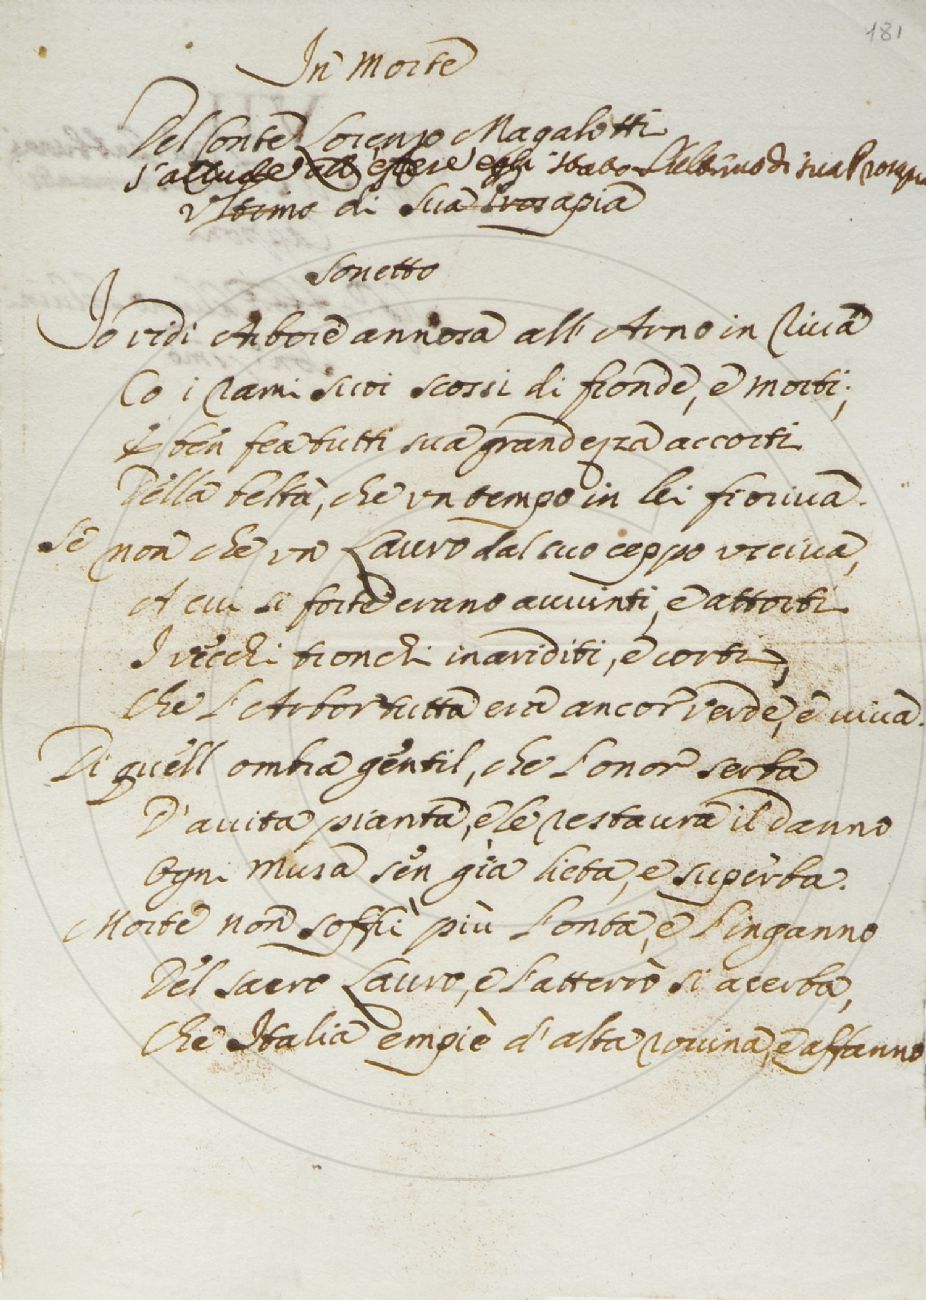 181
In Morte
Del Conte Lorenzo Magalotti
S'allude all' essere egli stato l'ultimo di sua Prosapia
Ultimo di Sua Prosapia
Sonetto
Io vidi Arbore annosa all' Arno in Riva
Co i rami suoi scossi di fronde, e morti;
E ben fea tutti sua grandezza accorti
Della beltà, che un tempo in lei fioriva.
Se non che un Lauro dal suo ceppo usciva,
A cui sì forte erano avvinti, e attorti
I vecchi tronchi inariditi, e corti,
Che l'Arbor tutta era ancor verde, e viva.
Di quell ombra gentil, che l'onor serba
D'avita pianta, e le restaura il danno
Ogni Musa sen gìa lieta, e superba.
Morte non soffrì più l'onta, e l'inganno
Del sacro Lauro, e l'atterrò sì acerba,
Che Italia empiè d'alta rovina, e affanno